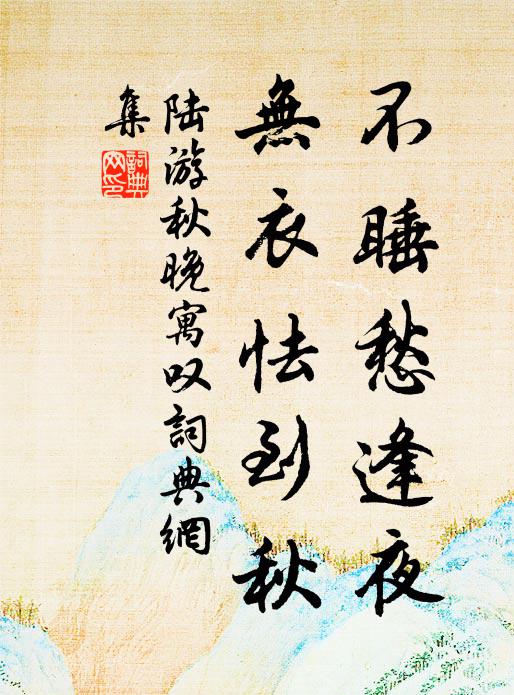 不睡愁逢夜
無衣怯到秋
陆游秋晚寓叹詞典網
集
詞典网印